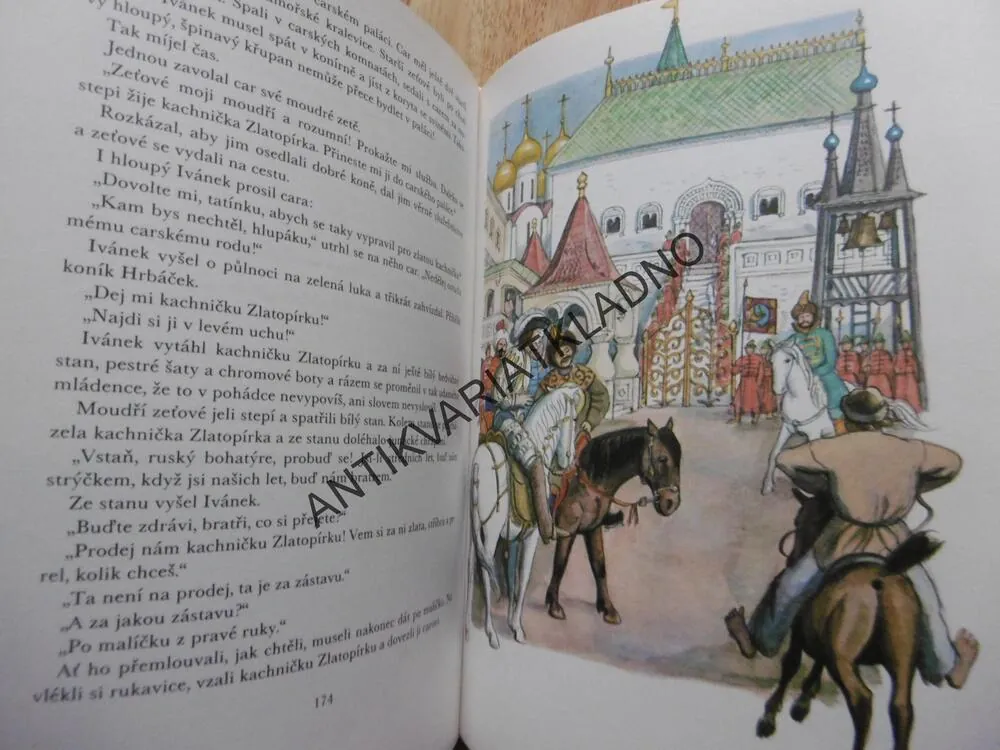 carském paláci. Car měl ještě dva starší
mořské kralevice. Starší zeťové byli po chuti
Spali v carských komnatách, sedali s carem za
Ivánek musel spát v konírně a jíst z koryta se sviněmi.
vy hloupý, špinavý křupan nemůže přece bydlet v paláci!
Tak míjel čas.
Jednou zavolal car své moudré zetě.
„Zeťové moji moudří a rozumní! Prokažte mi službu. Daleko ve
stepi žije kachnička Zlatopírka. Přineste mi ji do carského paláce.“
Rozkázal, aby jim osedlali dobré koně, dal jim věrné služebnictvo
a zeťové se vydali na cestu.
I hloupý Ivánek prosil cara:
„Dovolte mi, tatínku, abych se taky vypravil pro zlatou kachničku.“
„Kam bys nechtěl, hlupáku,“ utrhl se na něho car. „Nedělej ostudu
mému carskému rodu!“
Ivánek vyšel o půlnoci na zelená luka a třikrát zahvízdal. Přiběhl
koník Hrbáček.
„Dej mi kachničku Zlatopírku!“
„Najdi si ji v levém uchu!“
Ivánek vytáhl kachničku Zlatopírku a za ní ještě bílý hedvábný
stan, pestré šaty a chromové boty a rázem se proměnil v tak udatného
mládence, že to v pohádce nevypovíš, ani slovem nevyslovíš.
Moudří zeťové jeli stepí a spatřili bílý stan. Kolem stanu se
zela kachnička Zlatopírka a ze stanu doléhalo
„Vstaň, ruský bohatýre, probuď se! Jsi-li středních let, buď nám
strýčkem, když jsi našich let, buď nám bratrem.“
Ze stanu vyšel Ivánek.
„Buďte zdrávi, bratři, co si přejete?“
„Prodej nám kachničku Zlatopírku! Vem si za ni zlata, stříbra a pe
rel, kolik chceš.“
„Ta není na prodej, ta je za zástavu.“
„A za jakou zástavu?“
„Po malíčku z pravé ruky.“
Ať ho přemlouvali, jak chtěli, museli nakonec dát po malíčku. Na
vlékli si rukavice, vzali kachničku Zlatopírku a dovezli ji carovi
174
ANTIKVARIÁTKLADNO